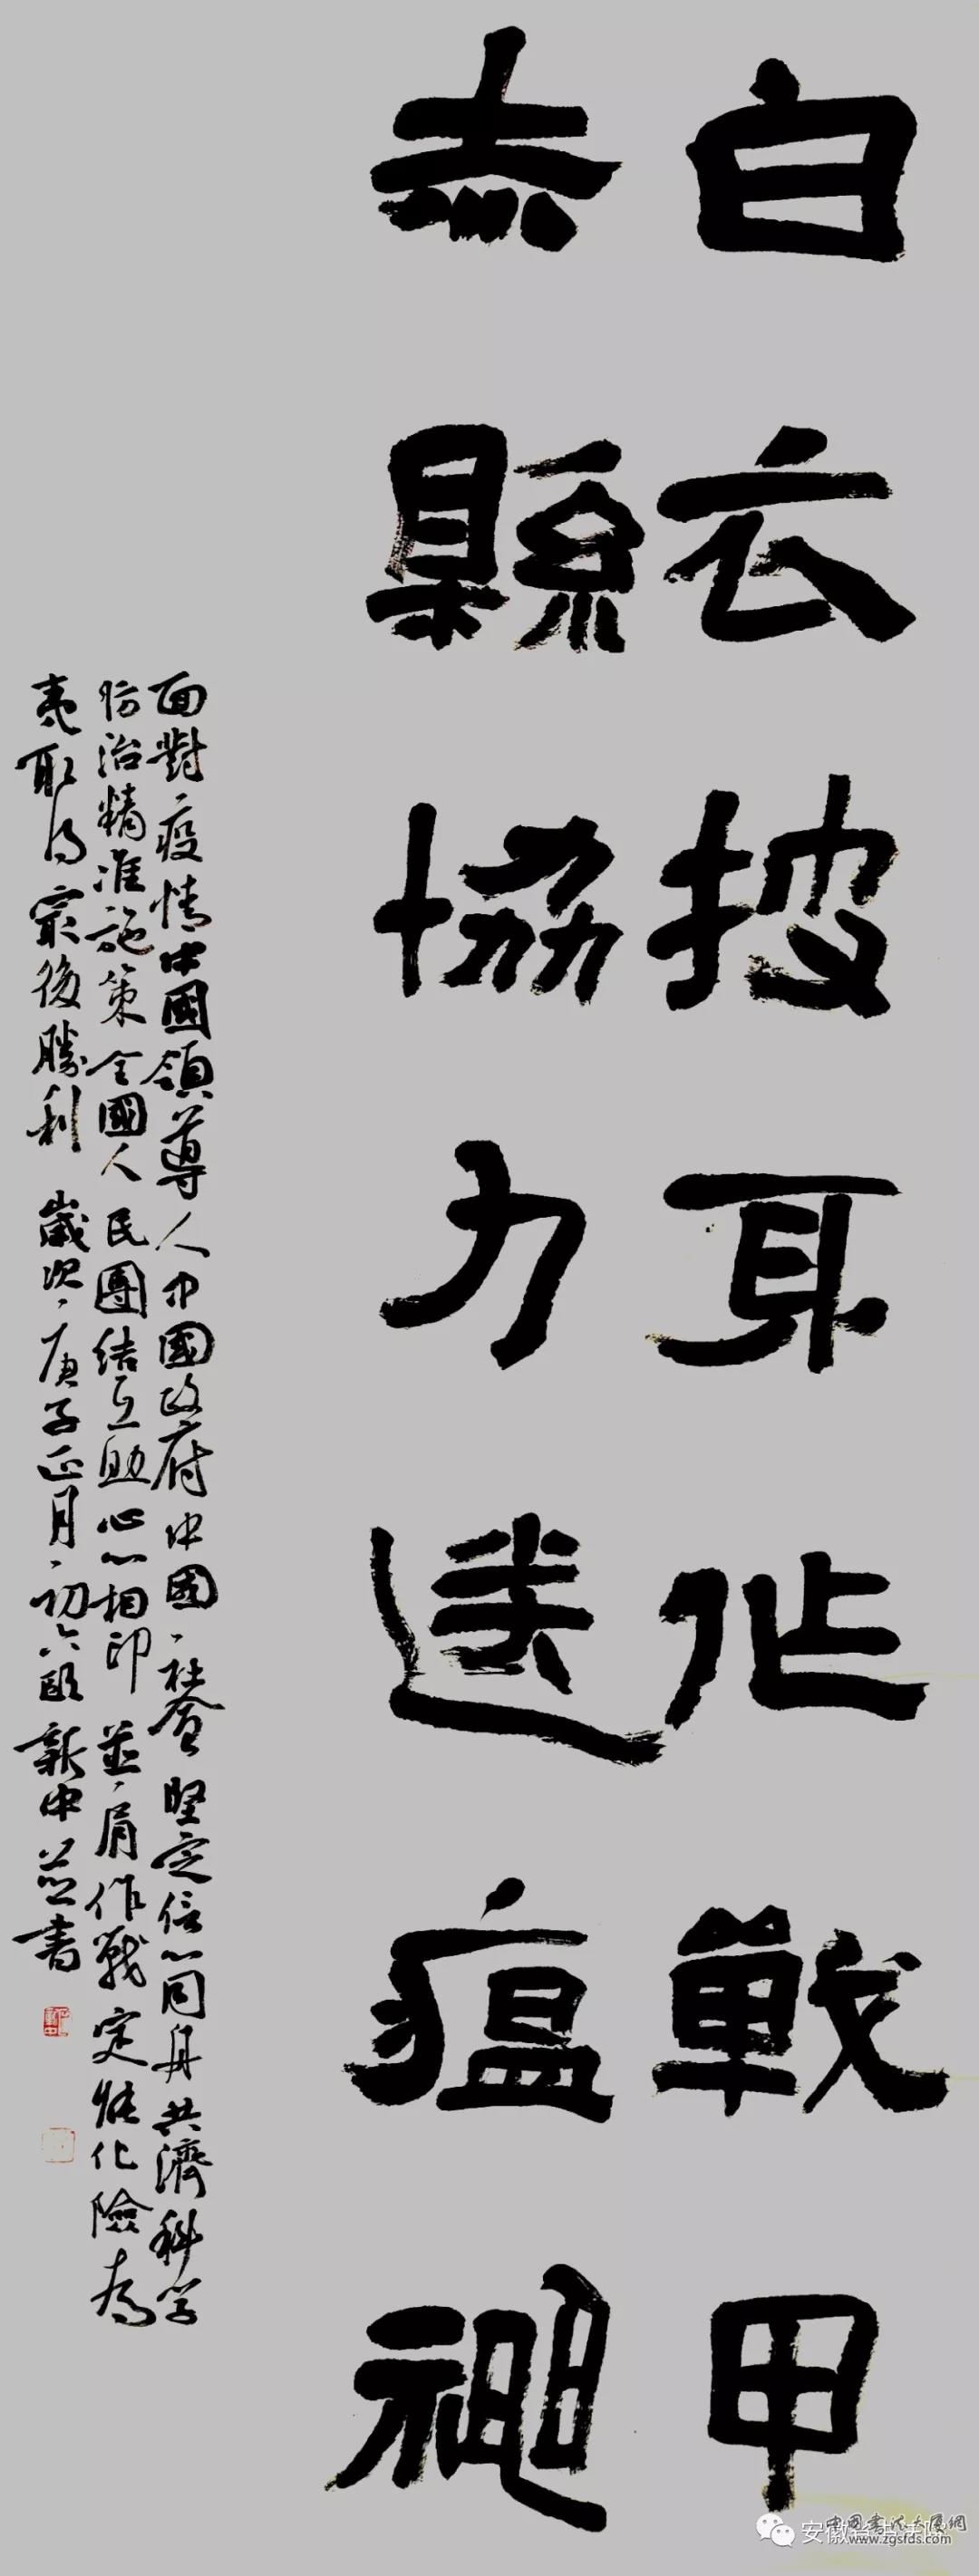 白衣披耳作戰甲
赤縣協力送瘟神
面對疫情中國領導人中國政府中國社會堅定信心同舟共濟科学
防治精准施策全國人民團結互助心心相印並肩作戰定能化險為
夷取得最後勝利 歲次庚子正月初六歐新中並書
安徽
中国書法大厦網
www.zgsfds.com